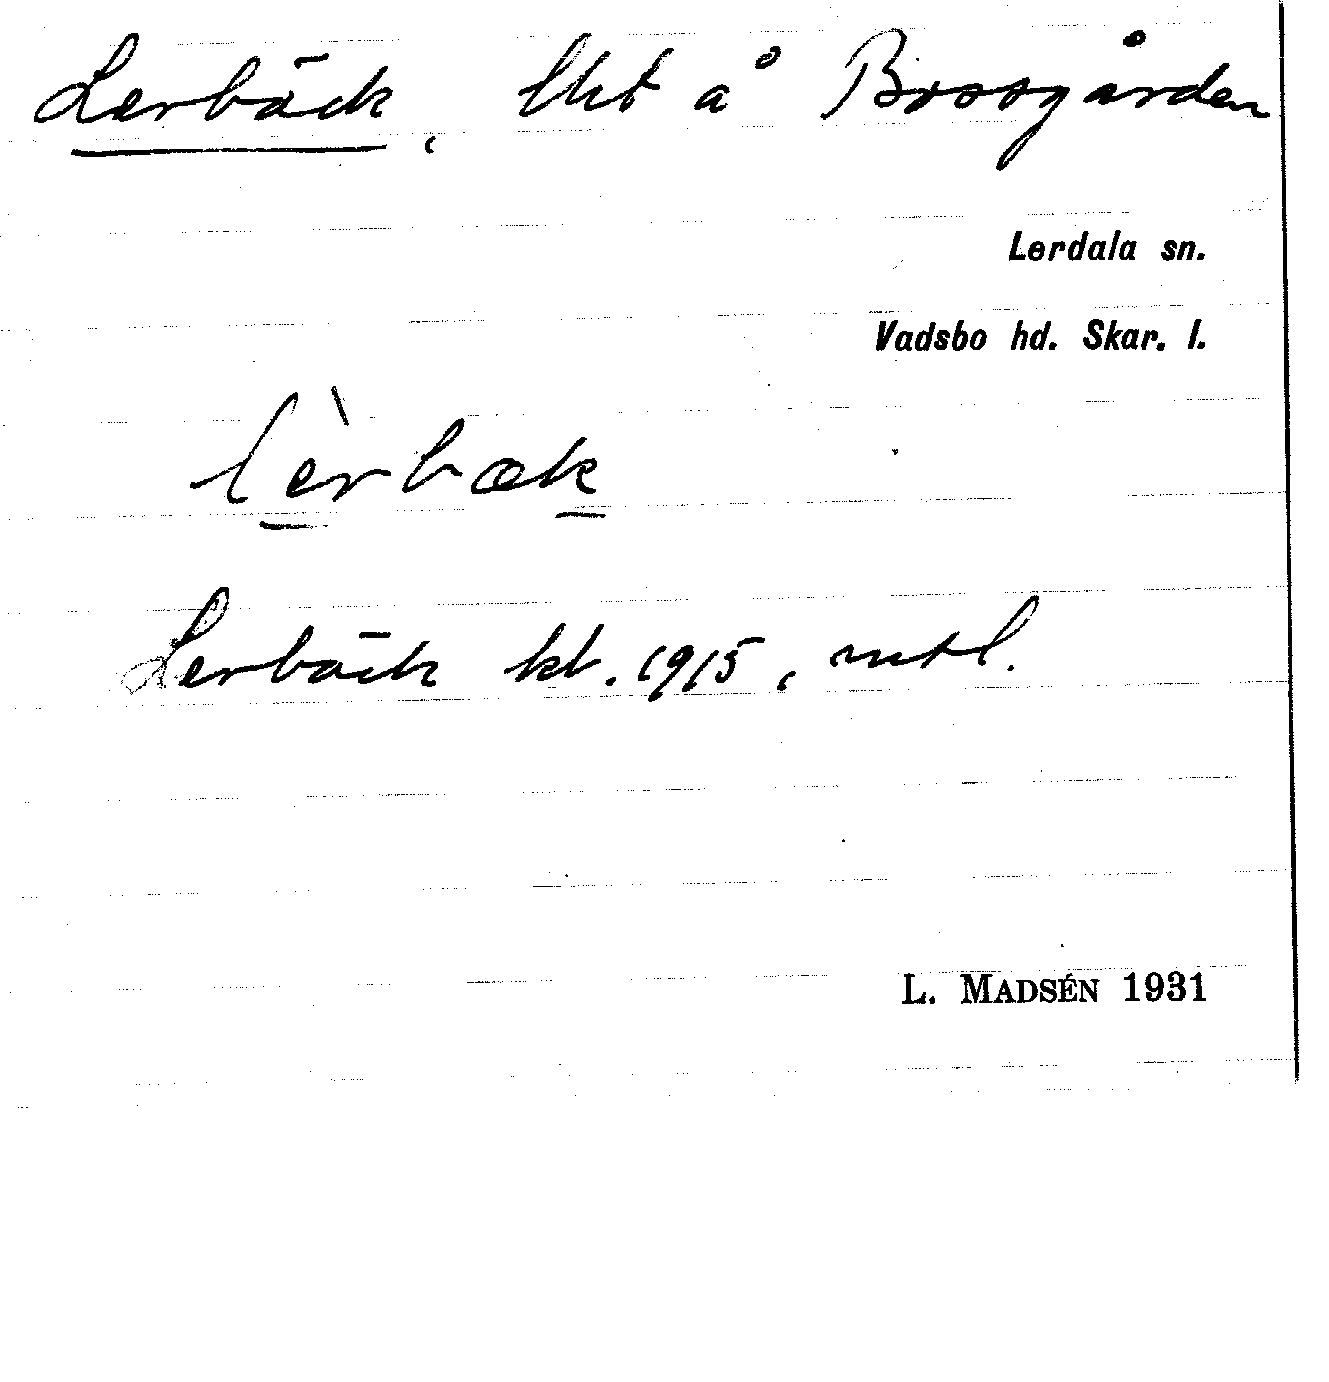 Lerbäck, lht å Bossgården
Lerdala sn.
Vadsbo hd. Skar. l.
lèrbæk
Lerbäck kb. 1915, mtl.
L. MADSÉN 1931